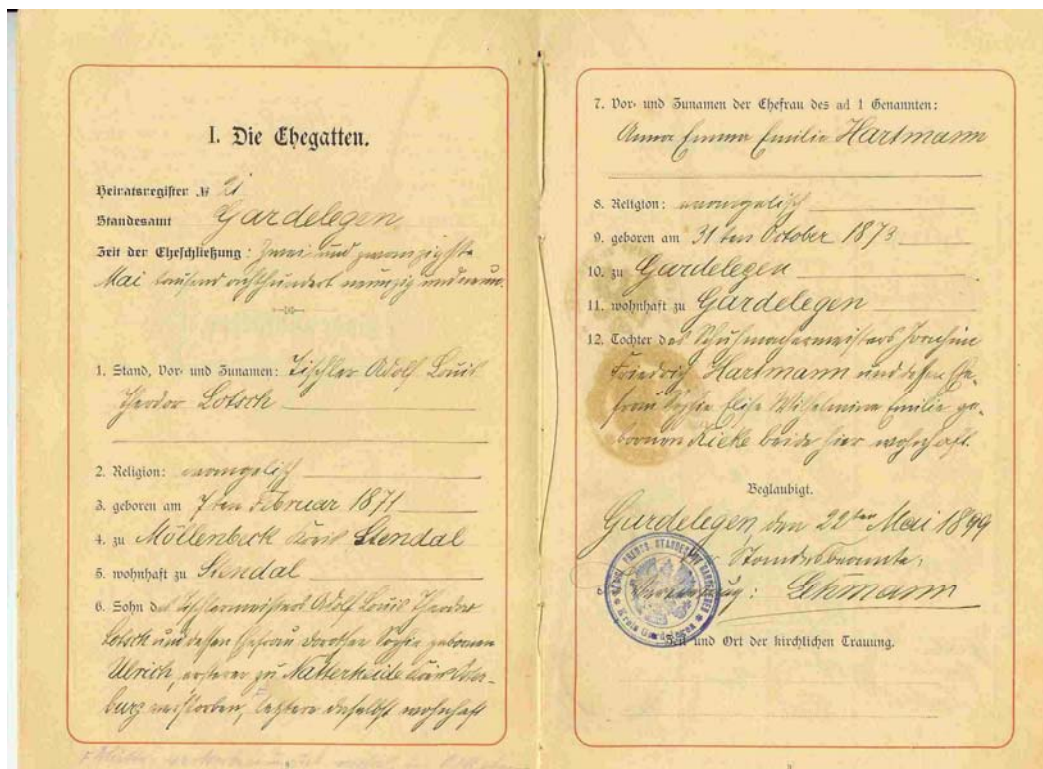 I. Die Ehegatten.
Heiratsregister № 21
Standesamt Gardelegen
Zeit der Eheschließung: Zwei und zwanzigste
Mai tausend achthundert neunzig und neun.
1. Stand, Vor- und Zunamen: Tischler Adolf Louis
Theodor Lotsch
2. Religion: evangelisch
3. geboren am 7ten Februar 1871
4. zu Möllenbeck Kreis Stendal
5. wohnhaft zu Stendal
6. Sohn des Tischlermeisters Adolf Louis Theodor
Lotsch und dessen Ehefrau Dorothee Sophie gebornen
Ulrich, ersterer zu Natterheide Kreis Oster-
burg verstorben, letztere daselbst wohnhaft
7. Vor- und Zunamen der Ehefrau des ad 1 Genannten:
Anna Emma Emilie Hartmann
8. Religion: evangelisch
9. geboren am 31ten October 1873
10. zu Gardelegen
11. wohnhaft zu Gardelegen
12. Tochter des Schuhmachermeisters Joachim
Friedrich Hartmann und dessen Ehe-
frau Sophie Elise Wilhelmine Emilie ge-
bornen Rieke beide hier wohnhaft.
Beglaubigt.
Gardelegen, den 22ten Mai 1899
Standesbeamte,
Lehmann
STANDESAMT GARDELEGEN
Kreis Gardelegen
Zeit und Ort der kirchlichen Trauung.